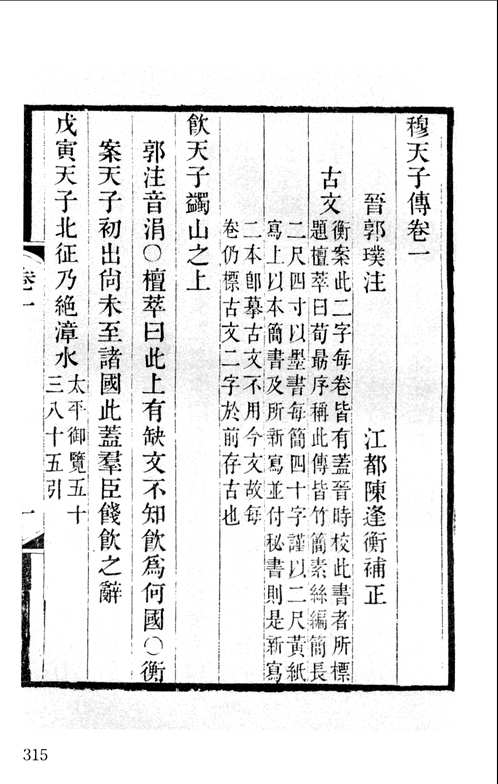 穆天子傳卷一
晉郭璞注　江都陳逢衡補正
古文
衡案此二字每卷皆有蓋晉時校此書者所標
題檀萃曰荀勗序稱此傳皆竹簡素絲編簡長
二尺四寸以墨書每簡四十字謹以二尺黃紙
寫上以本簡書及所新寫並付秘書則是新寫
二本卽摹古文不用今文故每
卷仍標古文二字於前存古也
飲天子蠲山之上
郭注音涓〇檀萃曰此上有缺文不知飲爲何國〇衡
案天子初出尙未至諸國此蓋羣臣餞飲之辭
戊寅天子北征乃絕漳水
太平御覽五十
三八十五引
卷一
一
315